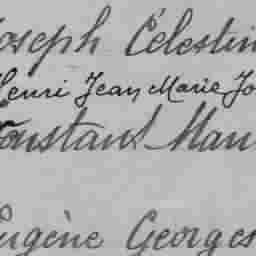 Joseph Célestin
Henri Jean Marie Jo
Constant Mau
Eugène Georges